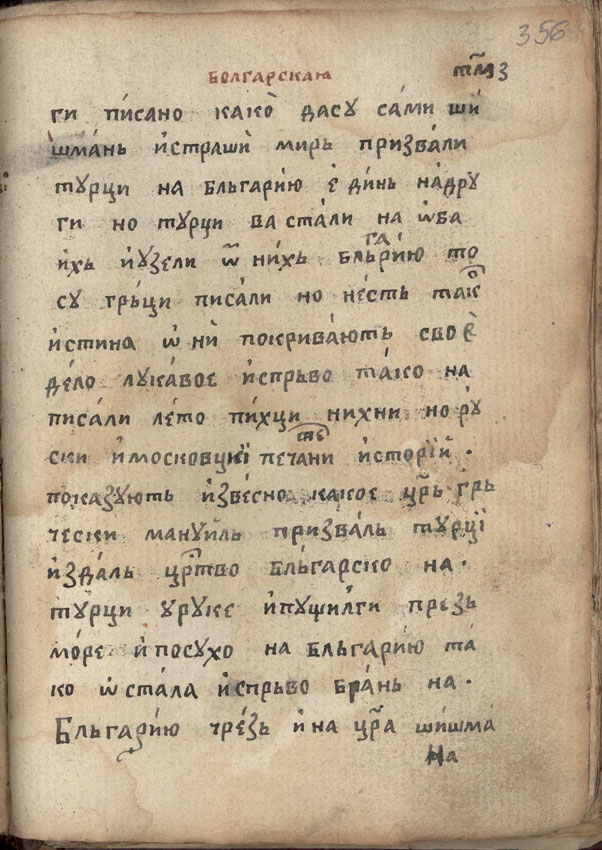 356
БОЛГАРСКАЮ т҃м҃з
ги пи́сано како̀ дасу са́ми ши́
шма́нь и́страши̇̀ мирь призва́ли
ту́рци на бльгари́ю є҆ди́нь на́дру
ги но ту́рци ва ста́ли на ѡ҆ба
и҆хь и҆узели ѿ ни́хь бльга́рию то
су гръ́ци писа́ли но не́сть тако̑
и҆стина ѡ҆ни̇̀ покрива́ють своѐ
де́ло лука́вое и҆спрьво та́ко на
писа́ли ле́то пи́хци нихни но ру́
ски и҆московцкїи печатени и҆сторїй ·
показу́ють и҆зве́сно какое цр҃ь грь
чески мануи́ль призва́ль ту́рцї
и҆зда́ль цр҃тво бльга́рско на ·
ту́рци у руке и҆пущи́лги презь
мо́ре и҆ посухо на бльгари́ю та́
ко ѡ҆ста́ла и҆спрьво бра́нь на ·
Бльгари́ю чре́зь и҆ на цр҃а ши́шма́
на